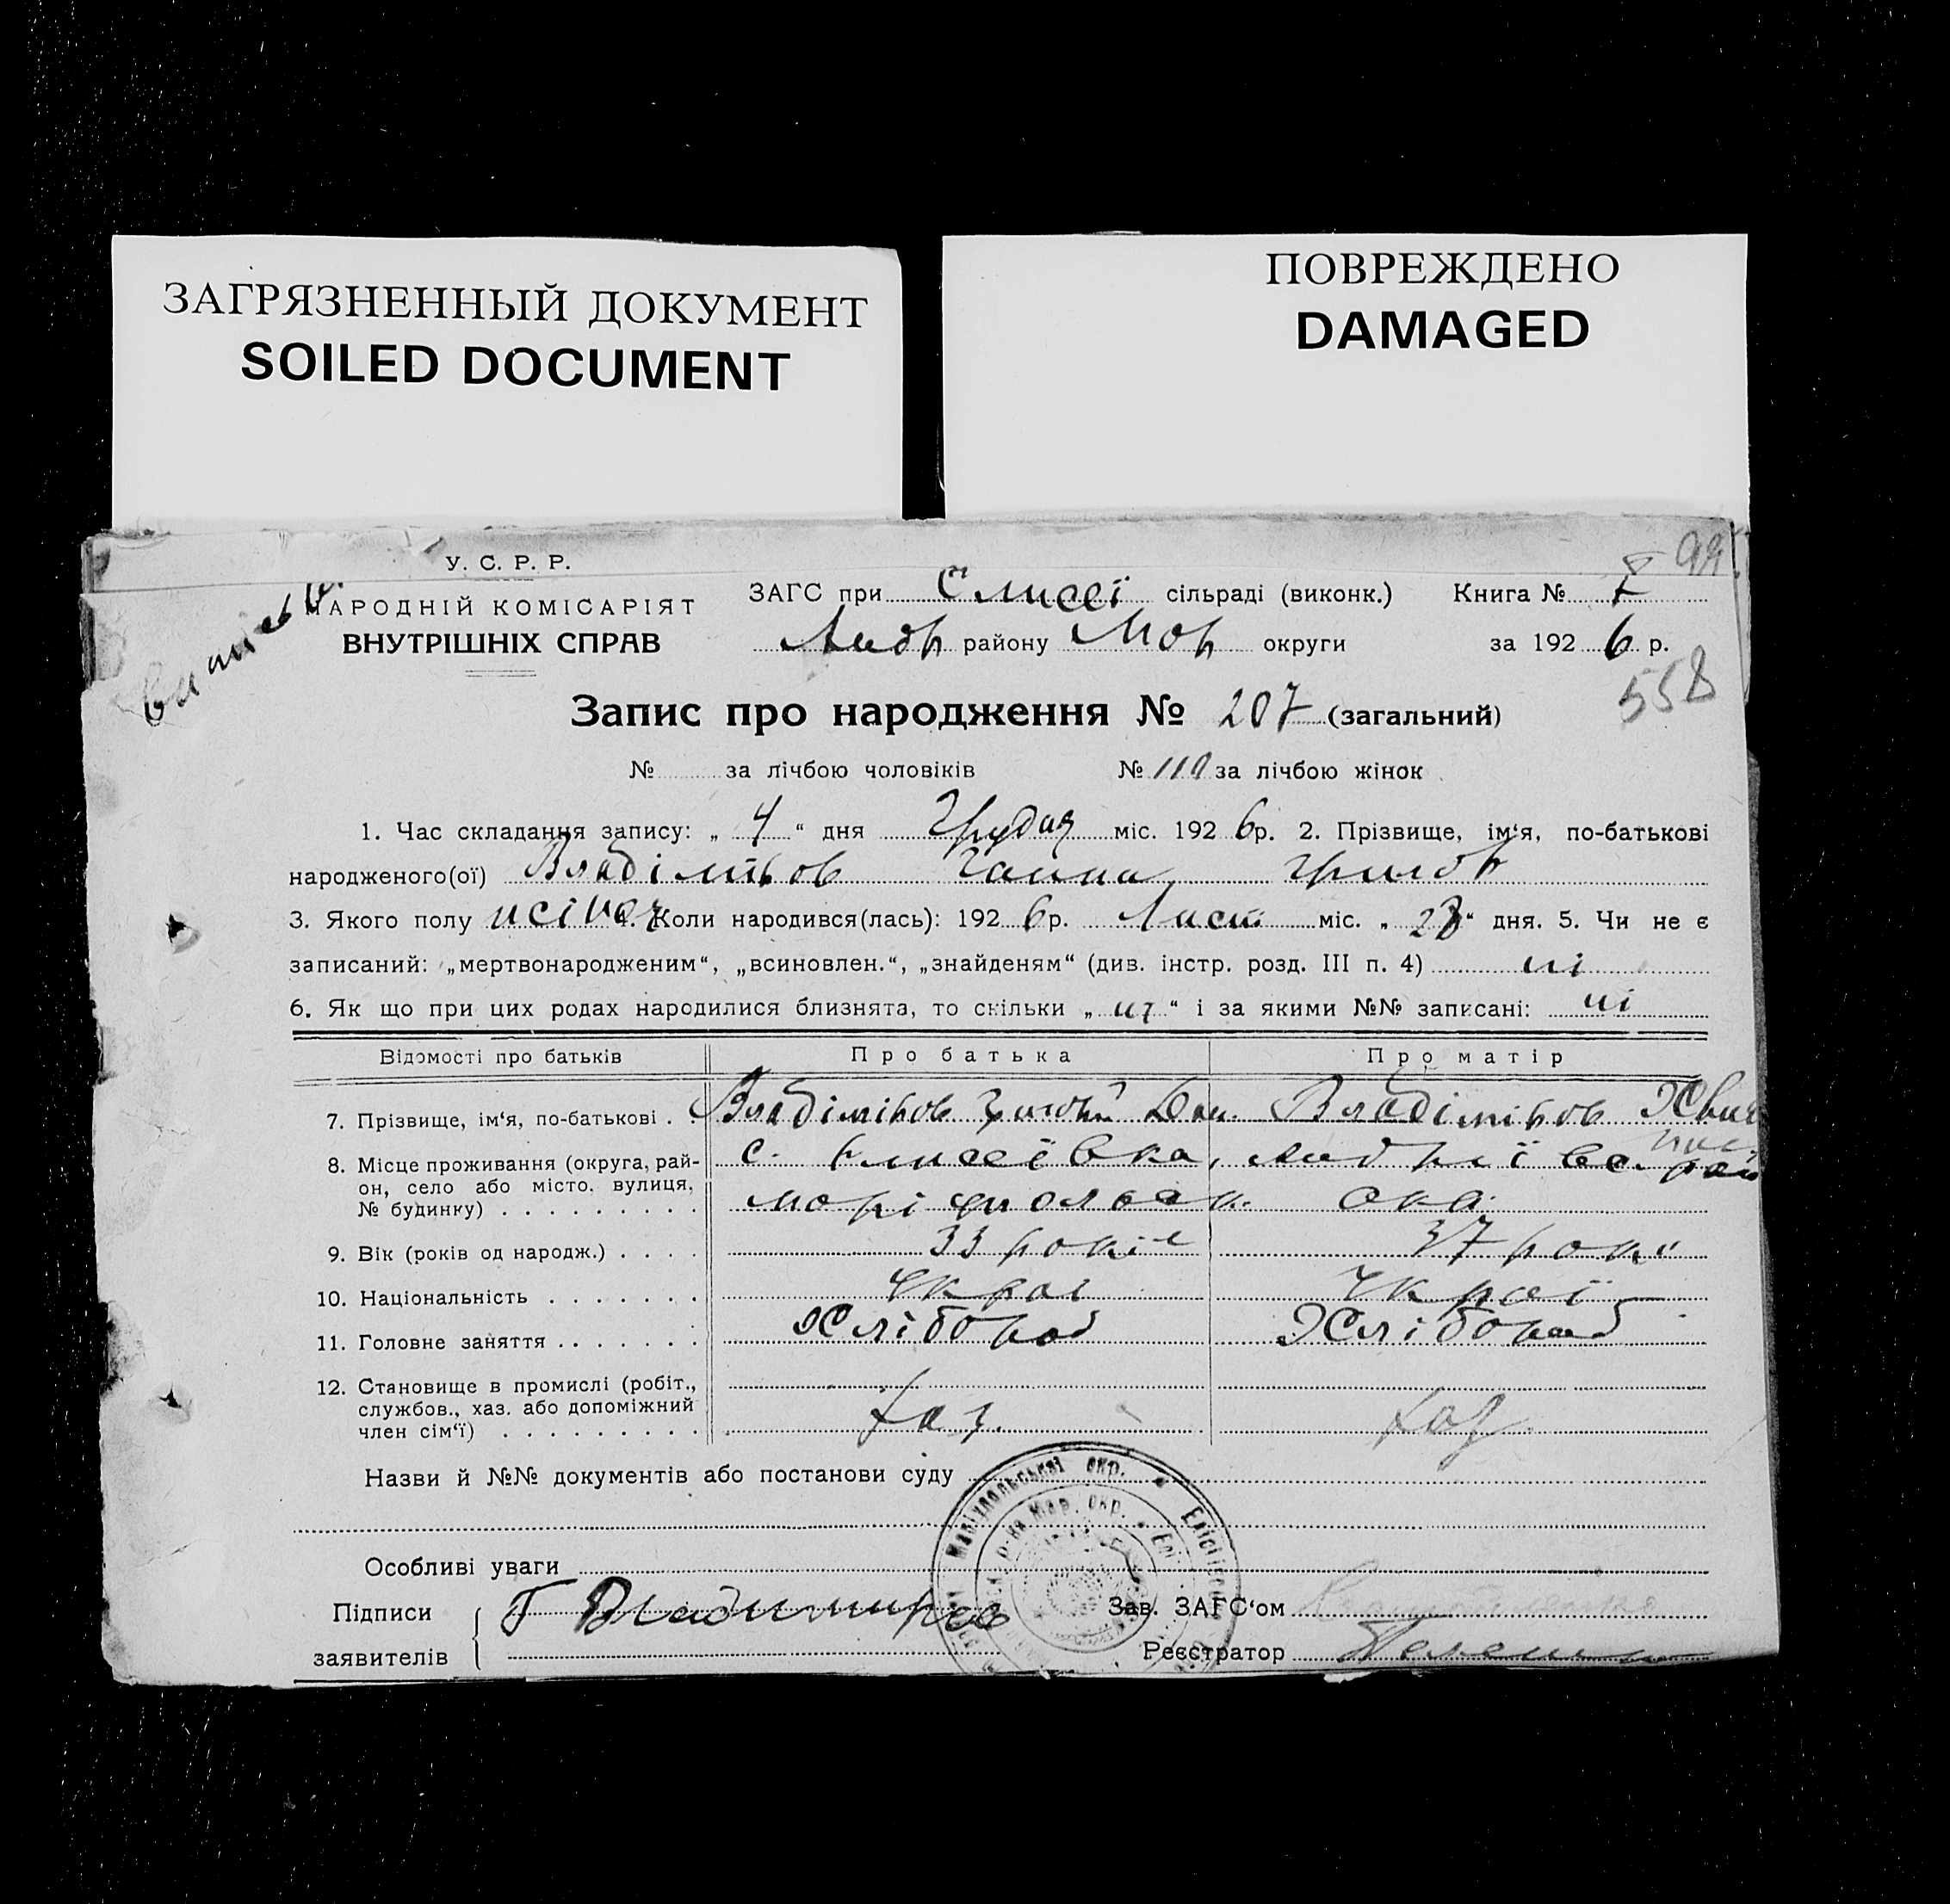 ЗАГРЯЗНЕННЫЙ ДОКУМЕНТ
SOILED DOCUMENT
ПОВРЕЖДЕНО
DAMAGED
99
У. С. Р. Р.
НАРОДНІЙ КОМІСАРІЯТ
ВНУТРІШНІХ СПРАВ
ЗАГС при Єлисеї сільраді (виконк.) Книга №
Андр району Мор округи за 1926 р.
558
Запис про народження № 207 (загальний)
№ за лічбою чоловіків № 110 за лічбою жінок
1. Час складання запису: „ 4 “ дня Грудня міс. 1926 р. 2. Прізвище, ім‘я, по-батькові
народженого(ої) Владіміров Ганна Григор
3. Якого полу жіноч 4. Коли народився(лась): 1926 р. Лист міс. „ 28 “ дня. 5. Чи не є
записаний: „мертвонародженим“, „всиновлен.“, „знайденям“ (див. інстр. розд. III п. 4) ні
6. Як що при цих родах народилися близнята, то скільки „ “ і за якими №№ записані: ні
Відомості про батьків Про батька Про матір
7. Прізвище, ім‘я, по-батькові Владіміров Григорій Дан. Владіміров
8. Місце проживання (округа, район, село або місто, вулиця, № будинку) с. Єлисеївка, Андріївс. рай
Маріупольск. окр.
9. Вік (років од народж.) 33 років 37 років
10. Національність Украї Украї
11. Головне заняття Хлібороб Хлібороб
12. Становище в промислі (робіт.,
службов., хаз. або допоміжний
член сім‘ї) хаз. хаз
Назви й №№ документів або постанови суду
Маріупольської окр.
Особливі уваги
Підписи Г Владимиров Зав. ЗАГС‘ом
заявителів Реєстратор